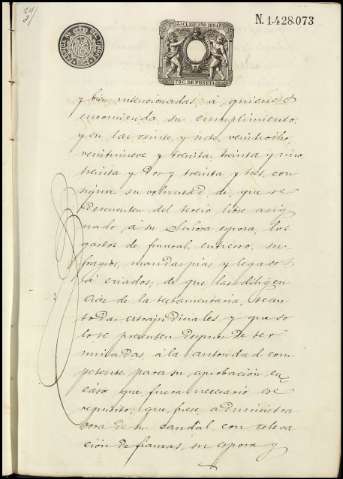 N. 1.428.073
y bien intencionadas, á quienes
encomienda su cumplimiento;
y en las veinte y seis, veintiocho,
veintinueve y treinta, treinta y uno,
treinta y dos y treinta y tres, con
signa su voluntad de que se
descuenten del tercio libre asig
nado á su Señora esposa, los
gastos de funeral, entierro, su
fragios, mandas pias y legados
á criados, de que las diligen
cias de la testamentaria, sean
todas extrajudiciales, y que so
lo se presenten despues de ter
minadas, á la autoridad com
petente para su aprobacion en
caso que fuera necesario ese
requisito; que fuese administra
dora de su caudal con releva
cion de fianzas, su esposa y